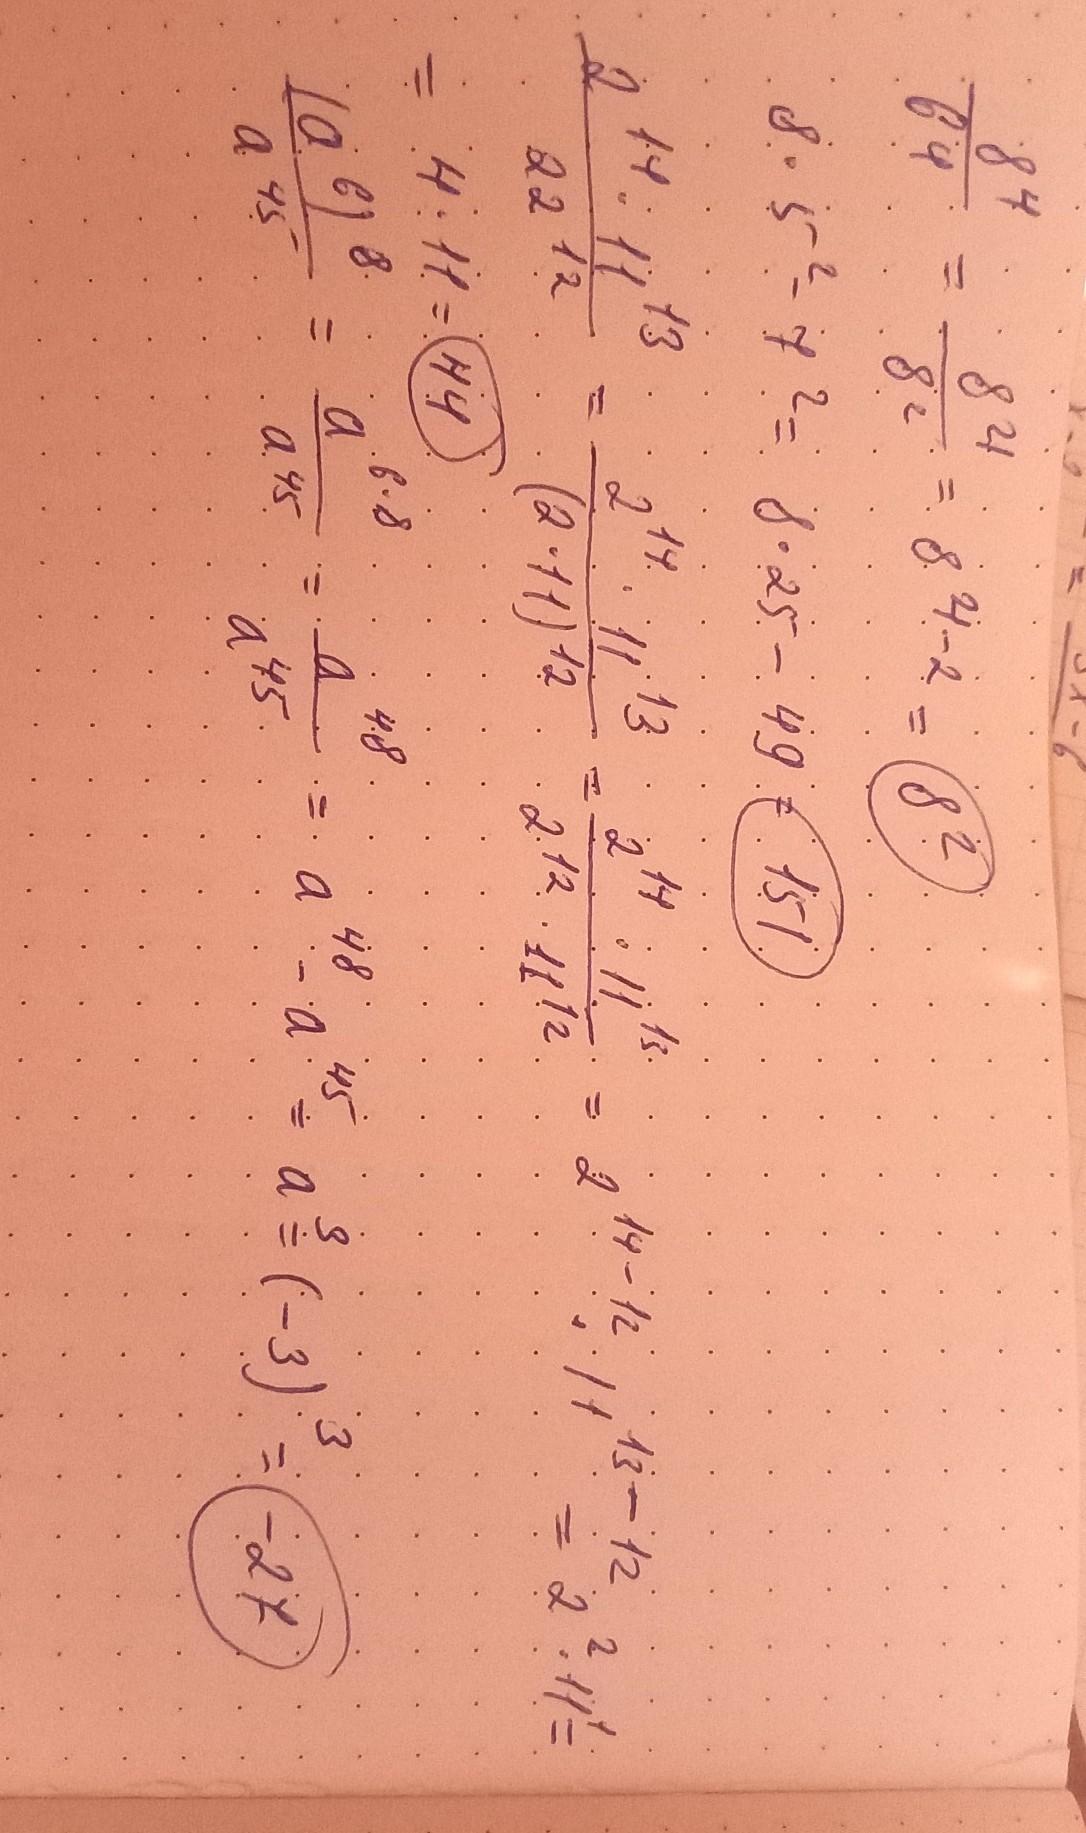 8⁴/64 = 8⁴/8² = 8⁴⁻² = 8²
8·5² - 7² = 8·25 - 49 = 151
2¹⁴·11¹³/22¹² = 2¹⁴·11¹³/(2·11)¹² = 2¹⁴·11¹³/2¹²·11¹² = 2¹⁴⁻¹²·11¹³⁻¹² = 2²·11¹ =
= 4·11 = 44
(a⁶)⁸/a⁴⁵ = a⁶·⁸/a⁴⁵ = a⁴⁸/a⁴⁵ = a⁴⁸ - a⁴⁵ = a³ = (-3)³ = -27